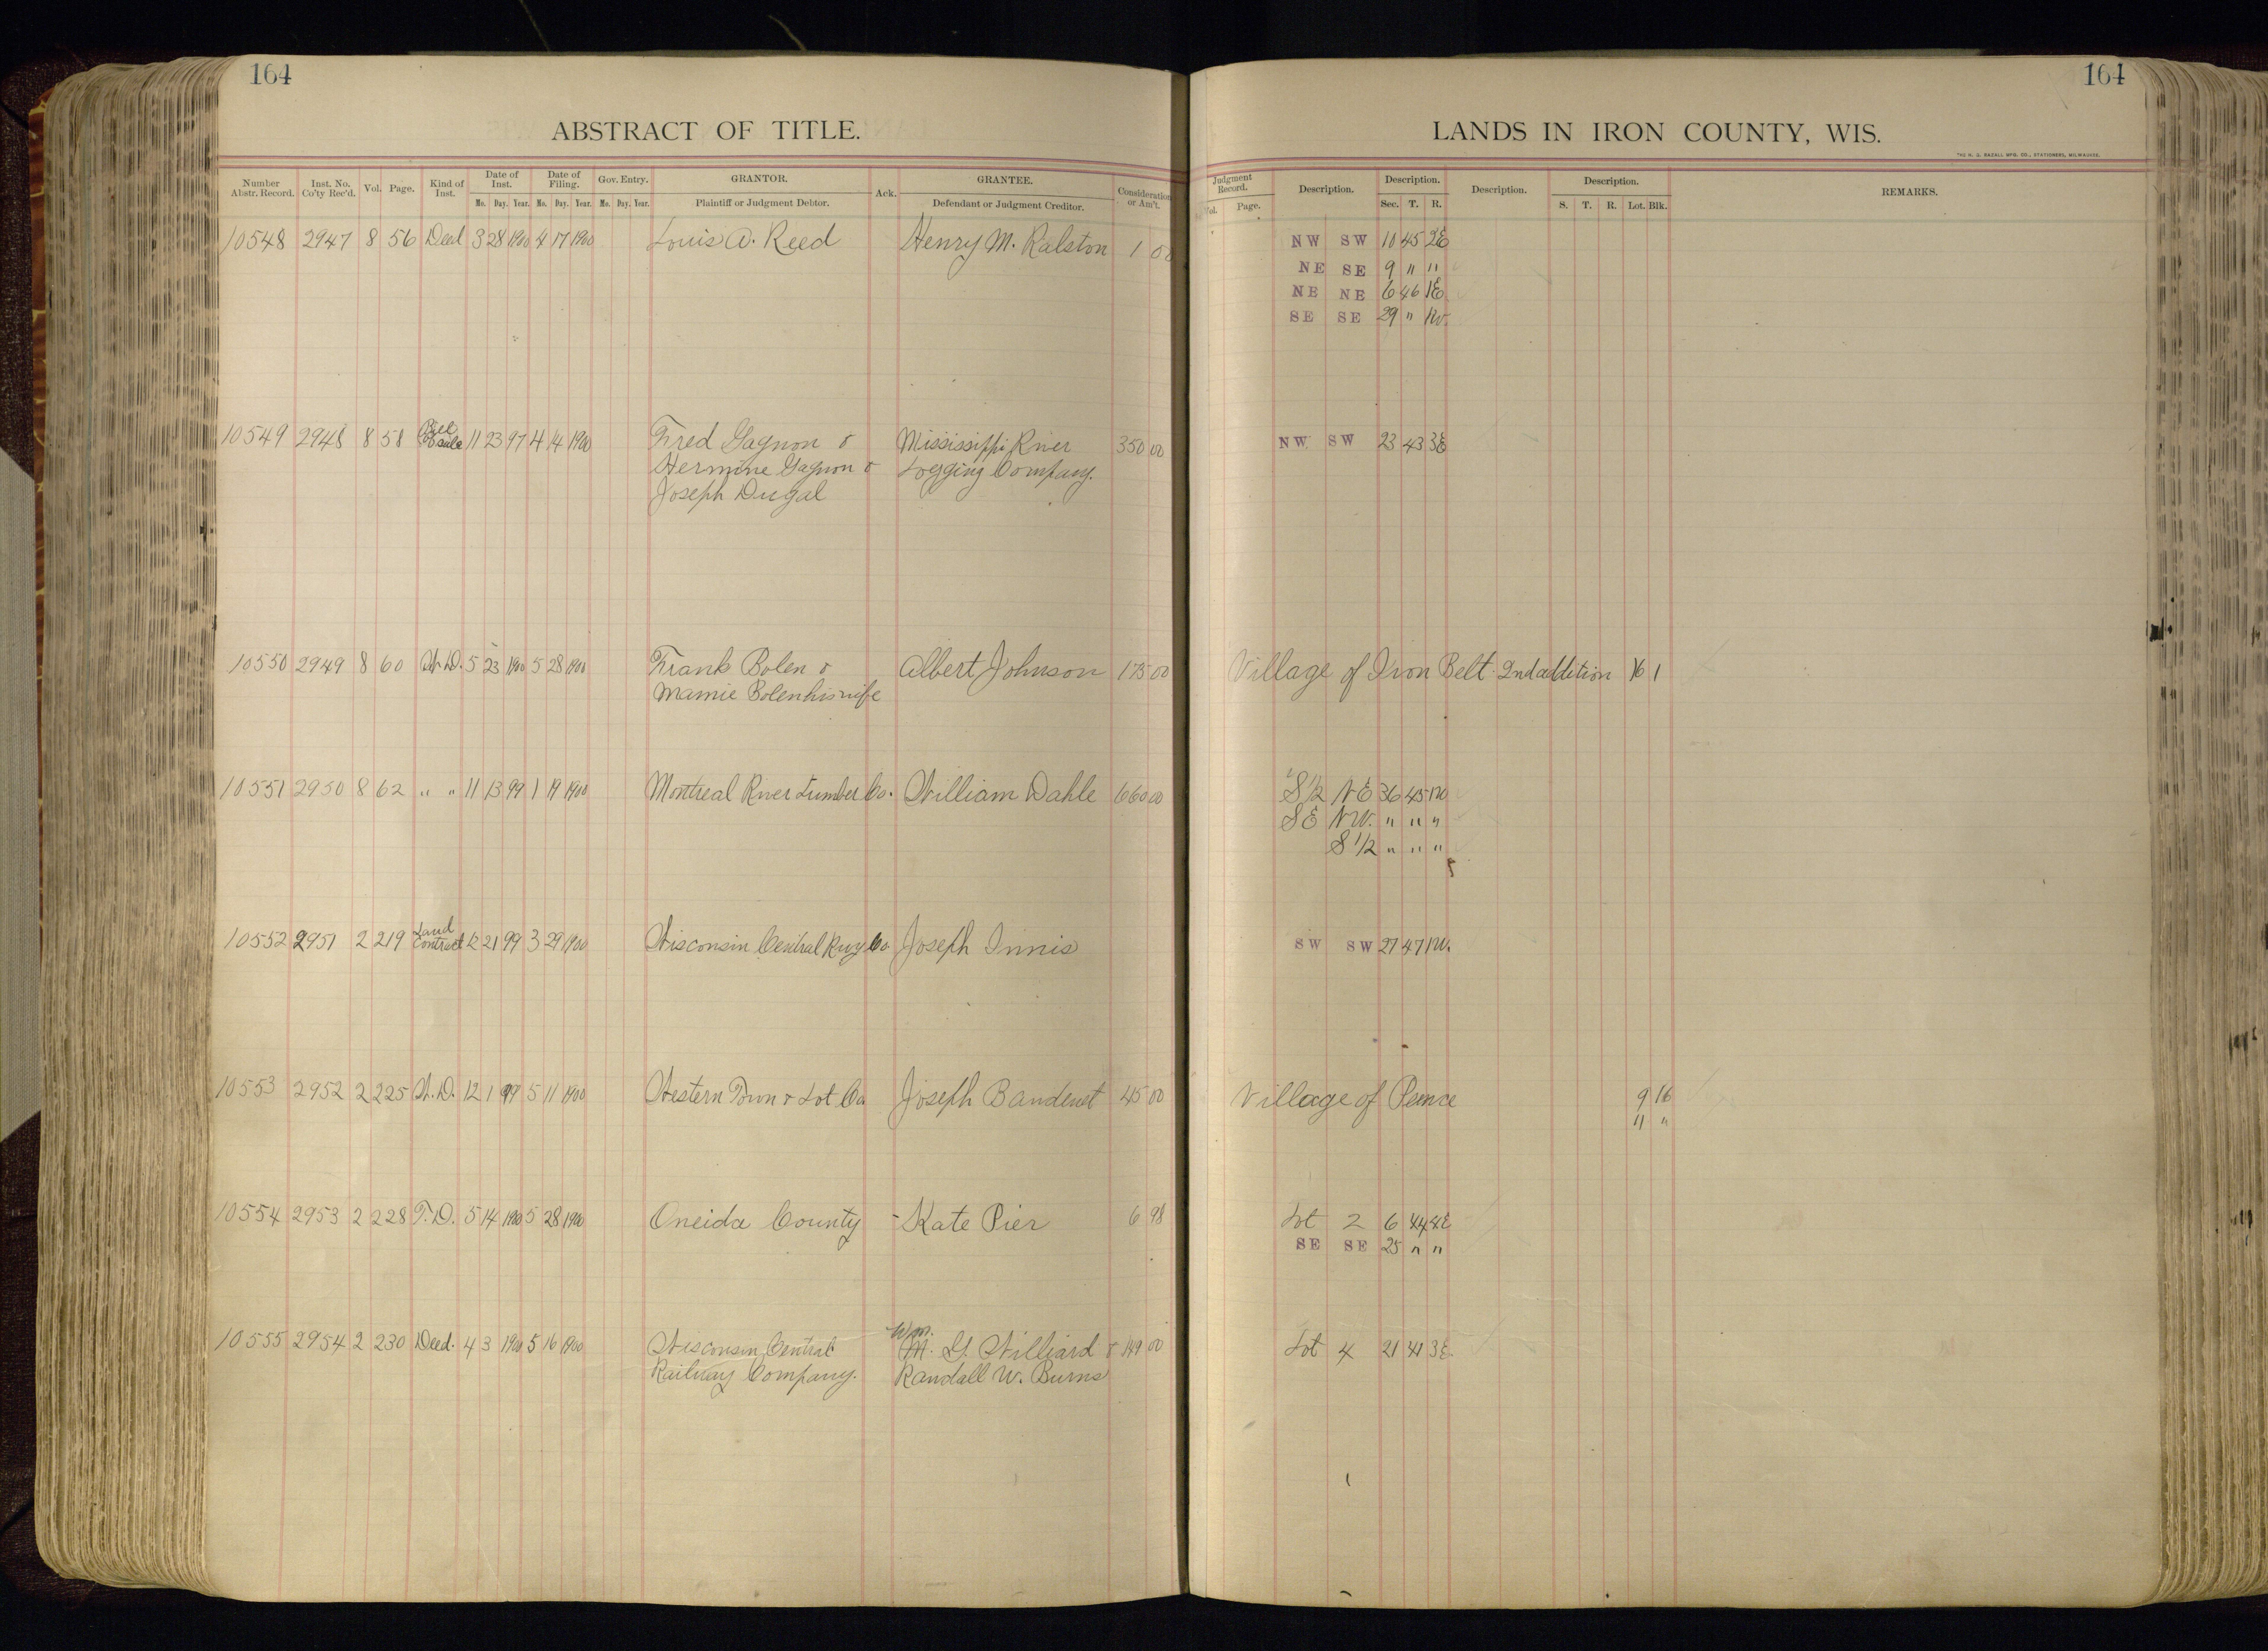 164
164
ABSTRACT OF TITLE.
LANDS IN IRON COUNTY, WIS.
THE H. G. RAZALL MFG. CO., STATIONERS, MILWAUKEE.
Number Abstr. Record. Inst. No. Co'ty Rec'd. Vol. Page. Kind of Inst. Date of Inst. Mo. Day. Year. Date of Filing. Mo. Day. Year. Gov. Entry. Mo. Day. Year. GRANTOR. Plaintiff or Judgment Debtor. Ack. GRANTEE. Defendant or Judgment Creditor. Consideration or Am't.
Judgment Record. Vol. Page. Description. Description. Sec. T. R. Description. Description. S. T. R. Lot. Blk. REMARKS.
10548 2947 8 56 Deed 3 28 1900 4 17 1900 Louis A. Reed Henry M. Ralston 1 00 NW SW 10 45 2E
NE SE 9 " "
NE NE 6 46 1E
SE SE 29 " 1W.
10549 2948 8 58 Bill Sale 11 23 97 4 14 1900 Fred Gagnon & Mississippi River 350 00 NW SW 23 43 3E
Hermine Gagnon & Logging Company.
Joseph Dugal
10550 2949 8 60 W.D. 5 23 1900 5 28 1900 Frank Bolen & Albert Johnson 175 00 Village of Iron Belt. 2nd addition 16 1
Mamie Bolen his wife
10551 2950 8 62 " " 11 13 99 1 19 1900 Montreal River Lumber Co. William Dahle 660 00 S 1/2 NE 36 45 1W
SE NW. " " "
S 1/2 " " "
10552 2951 2 219 Land Contract 12 21 99 3 29 1900 Wisconsin Central Rwy Co Joseph Innis SW SW 27 47 1W.
10553 2952 2 225 W.D. 12 1 99 5 11 1900 Western Town & Lot Co Joseph Baudenet 45 00 Village of Pence 9 16
" "
10554 2953 2 228 T.D. 5 14 1900 5 28 1900 Oneida County Kate Pier 6 98 Lot 2 6 44 4E
SE SE 25 " "
10555 2954 2 230 Deed. 4 3 1900 5 16 1900 Wisconsin Central Wm. M. G. Williard & 149 00 Lot 4 21 41 3E.
Railway Company. Randall W. Burns